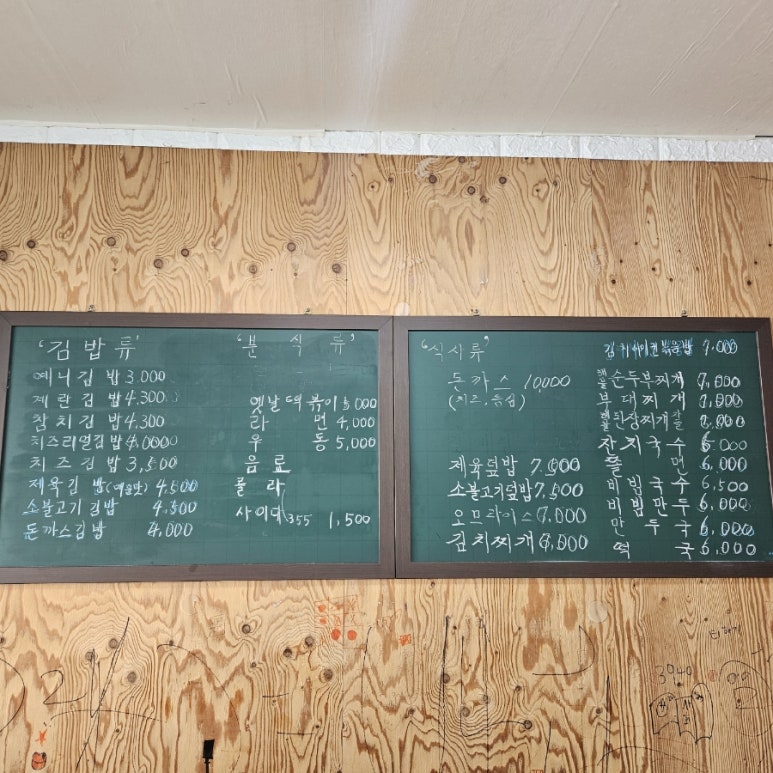 '김밥류'
예니김밥 3.000
계란김밥 4.300
참치김밥 4.300
치즈리얼김밥 4.0000
치즈김밥 3,500
제육김밥(매운맛) 4,500
소불고기김밥 4,500
돈까스김밥 4.000
'분식류'
옛날떡볶이 5,000
라면 4,000
우동 5,000
음료
콜라
사이다 355 1,500
'식사류'
돈까스 10,000
(치즈,등심)
제육덮밥 7,000
소불고기덮밥 7,500
오므라이스
김치찌개
김치 볶음밥 7,000
해물순두부찌개
부대찌개
된장찌개
잔치국수
쫄면 6,000
비빔국수 6,500
비빔만두 6,000
만두국 6,000
떡국 6,000
3040